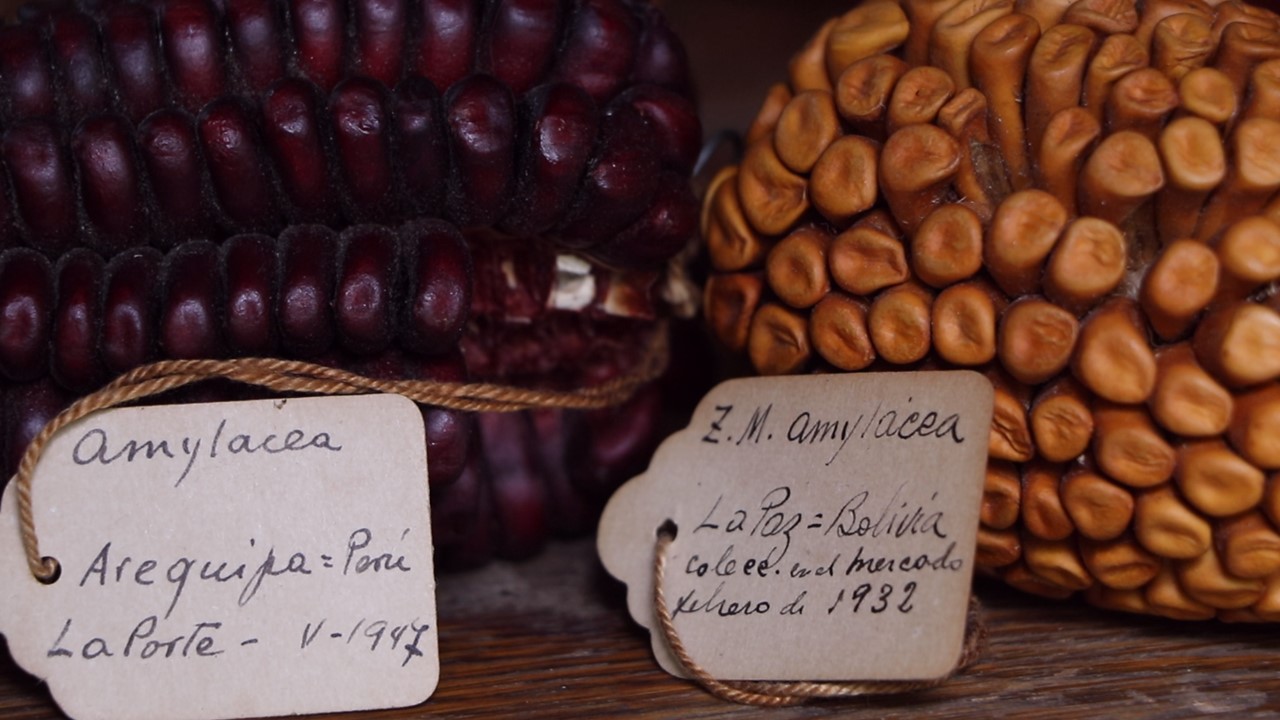 amylacea
Arequipa = Perú
La Porte - V-1947
Z.M. amylácea
La Paz = Bolivia
colecc. en el mercado
febrero de 1932